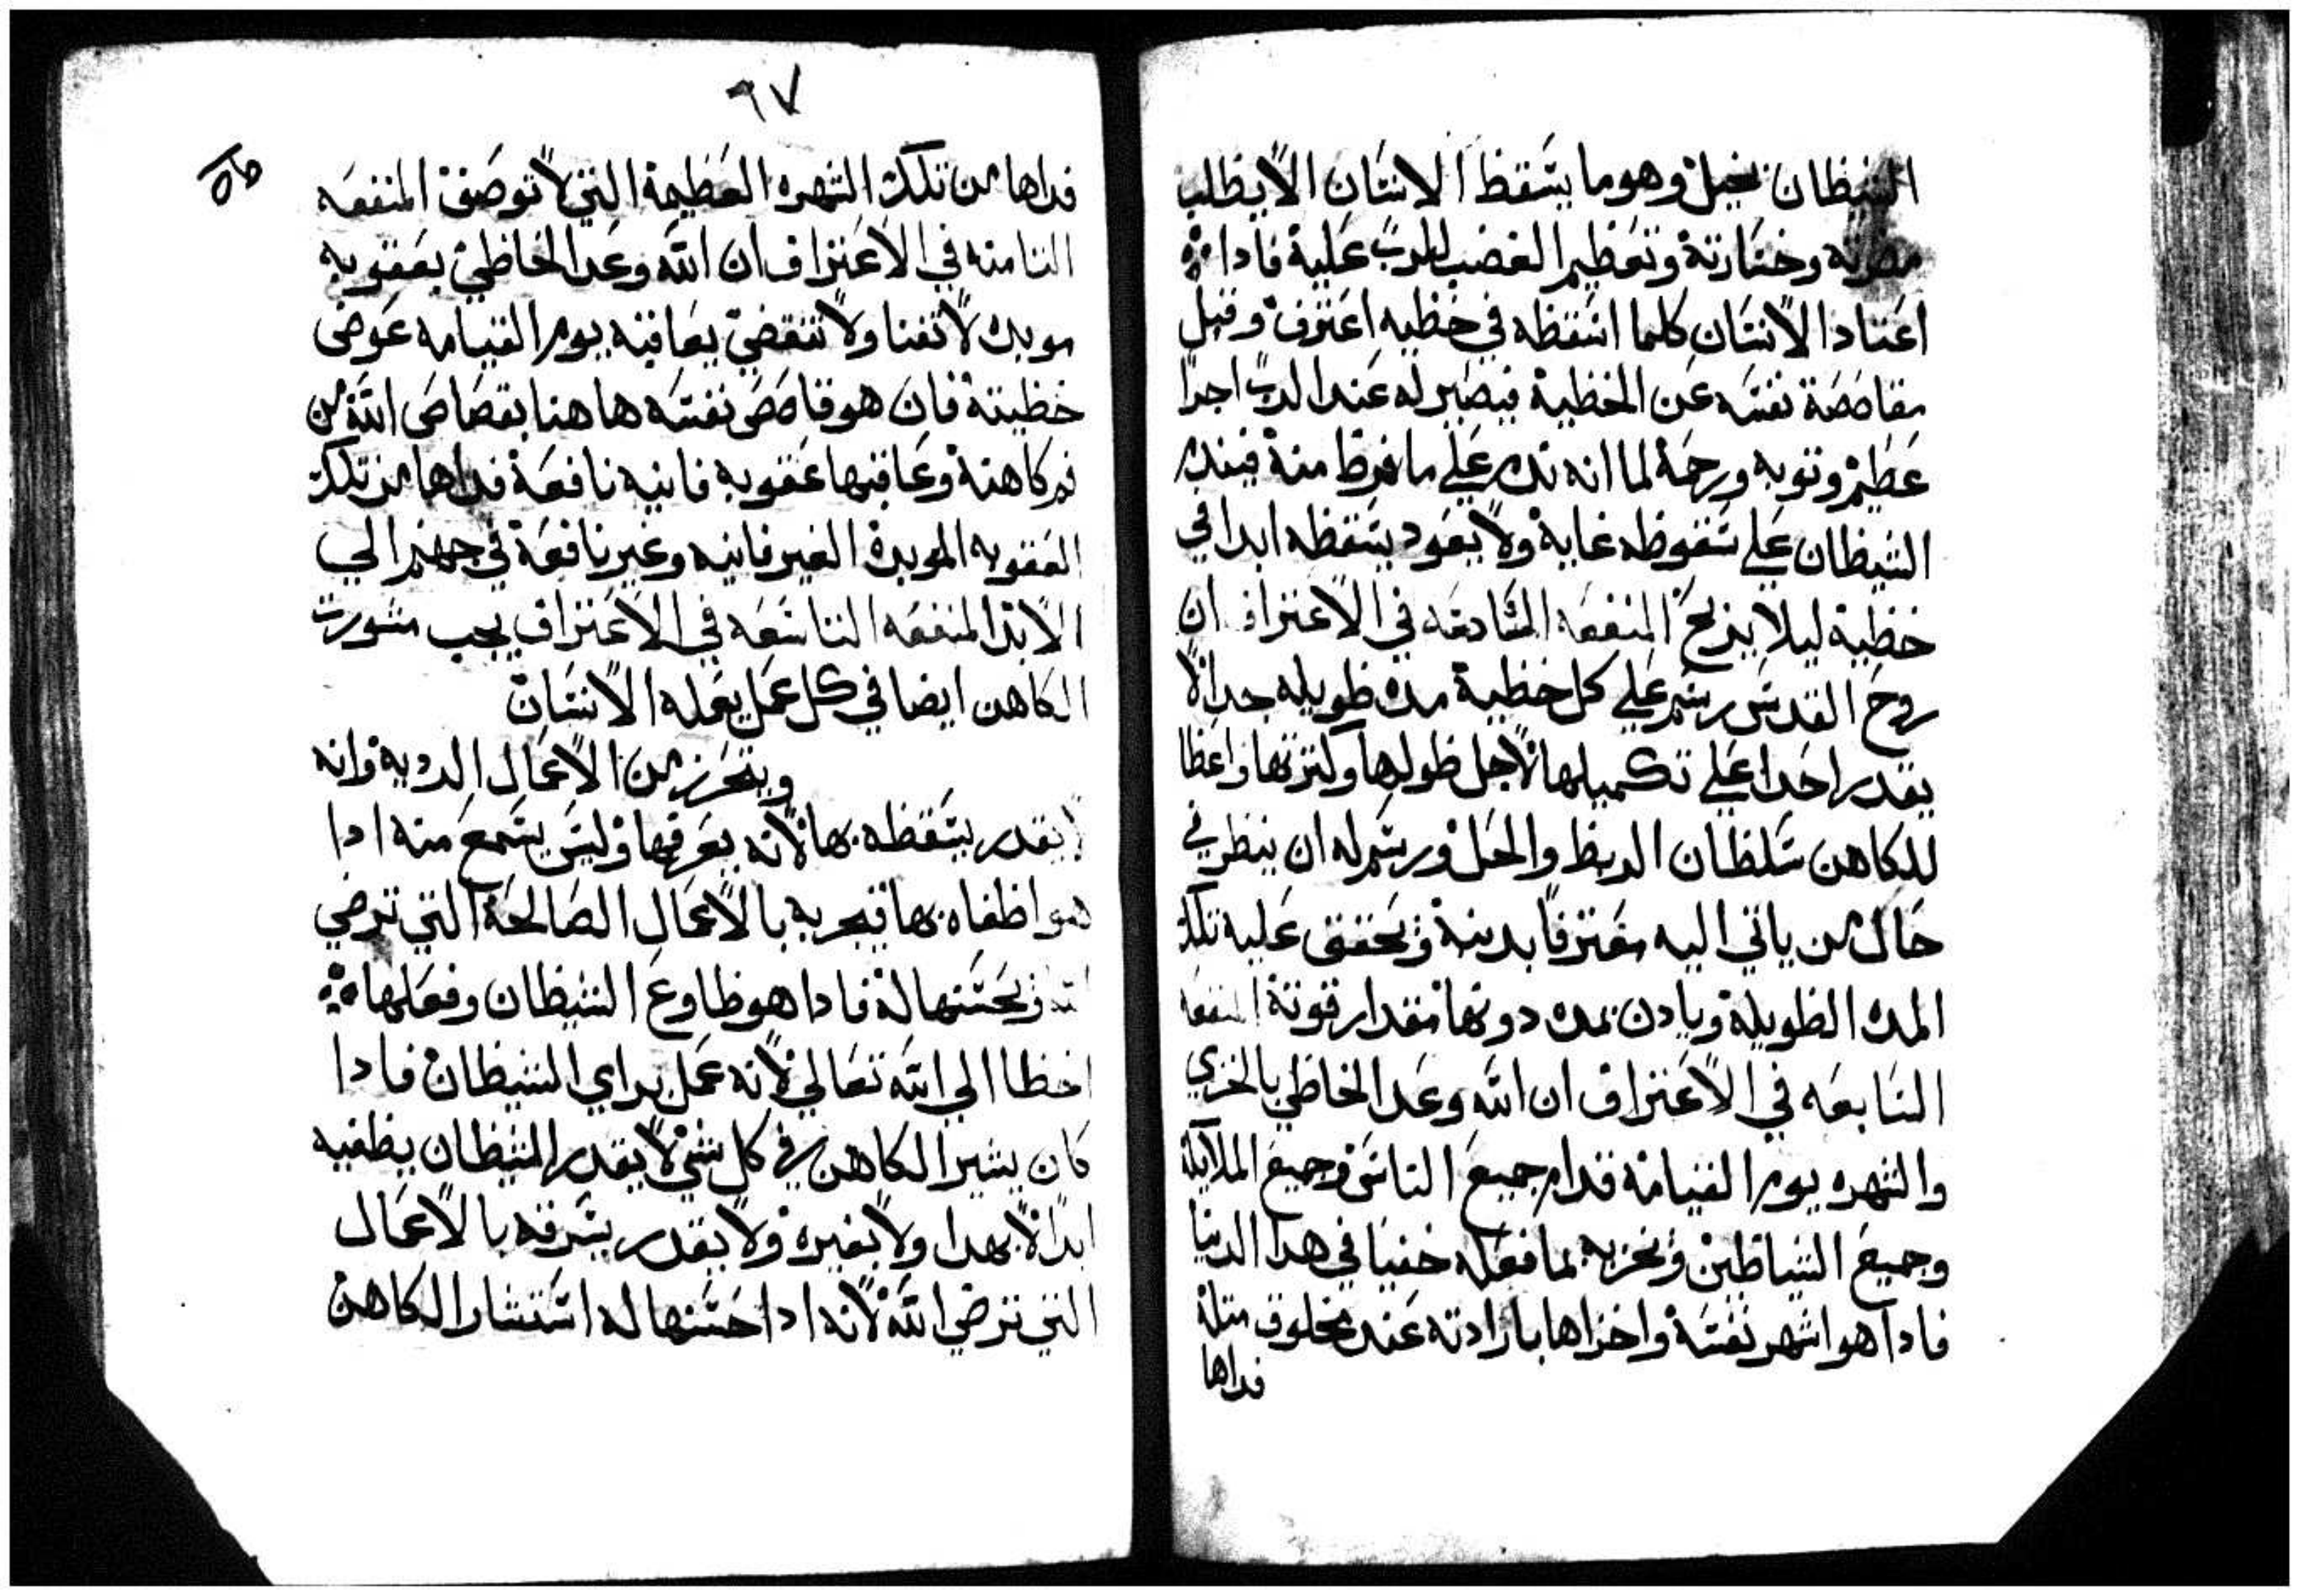 الشيظان بخيل وهو ما يسقظ الانسان الا يظلب
مضرته وخسارته وتعظيم الغضب للرب علية فادا
اعتاد الانسان كلما اسقظه في خظيه اعترف وقبل
مقاصصة نفسه عن الخظية فيصير له عند الرب اجرا
عظيم وتوبه ورحمة لما انه ندم علي ما فرظ منة فيندم
الشيظان علي سقوظه غاية ولا يعود يسقظه ابدا في
خظية ليلا يربح المنفعه السادعه في الاعتراف ان
روح القدس رسم علي كل خظية مده ظويله جدا لا
يقدر احدا علي تكميلها لاجل ظولها وكترتها واعظا
للكاهن سلظان الربظ والحل ورسم له ان ينظر في
حال من ياتي اليه معترفا بدنبة ويحقق علية تلك
المده الظويلة ويادن بمده دونها مقدار قوتة المنفعه
السابعه في الاعتراف ان الله وعد الخاظي بالخزي
والشهره يوم القيامة قدام جميع الناس وجميع الملايكة
وجميع الشياظين ونخزيه بما فعله خفيا في هدا الدنيا
فادا هو اشهر نفسة واخزاها بارادته عند مخلوق متلة
فداها
٩٧
فداها من تلك الشهره العظيمة التي لا توصف المنفعه
التامنه في الاعتراف ان الله وعد الخاظي بعقوبه
موبده لا تفنا ولا تنقضي يعاقبه يوم القيامه عوض
خظيتة فان هو قاصص نفسه هاهنا بقصاص الله من
فم كاهنة وعاقبها عقوبه فانيه نافعة فداها من تلك
العقوبه الموبدة الغير فانيه وغير نافعة في جهنم الي
الابد المنفعه التاسعه في الاعتراف يجب مشورت
الكاهن ايضا في كل عمل يعمله الانسان
ويتحرز من الاعمال الرديه وانه
لا يقدر يسقظه بها لانه يعرفها وليس يسمع منه ادا
هو اظغاه بها فيجربه بالاعمال الصالحة التي ترضي
الله ويحسنها لة فادا هو ظاوع الشيظان وفعلها
اخظا الي الله تعالي لانه عمل براي الشيظان فادا
كان يشير الكاهن في كل شي لا يقدر الشيظان يظغيه
ابدا لا بهدا ولا بغيره ولا يقدر يسرقه بالاعمال
التي ترضي الله لانه ادا حسنها له استشار الكاهن